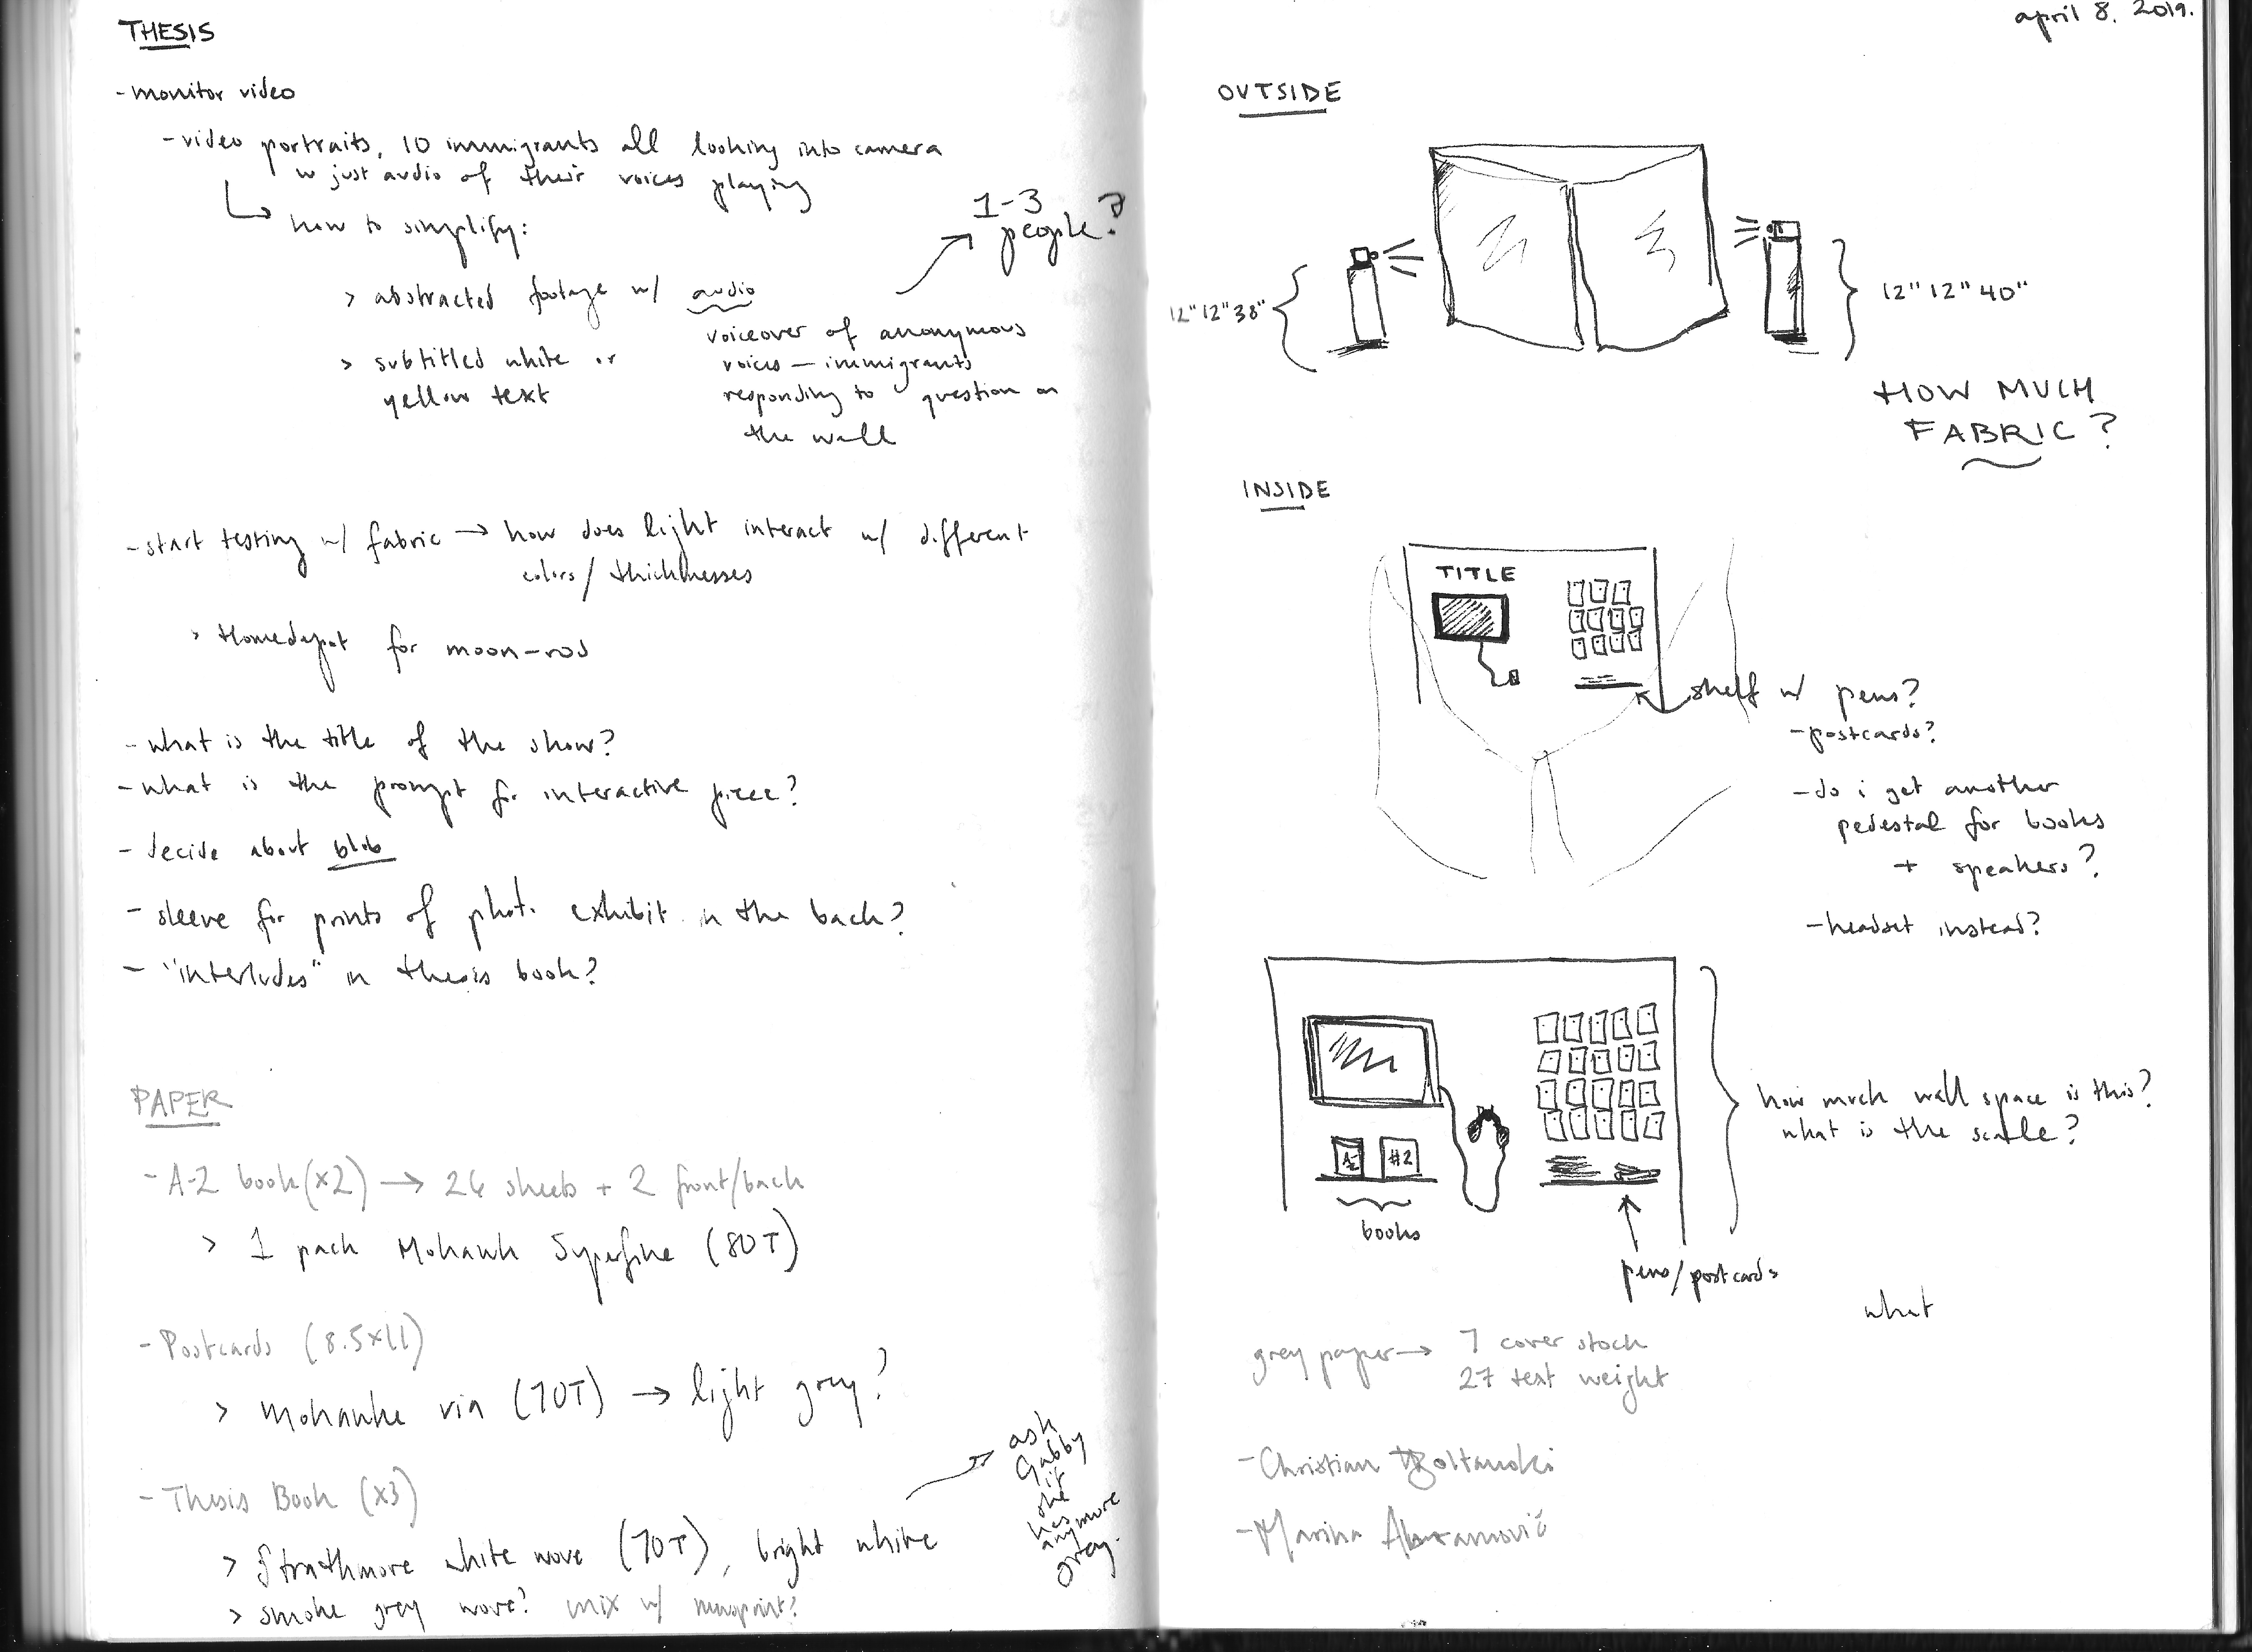 THESIS
- monitor video
- video portraits, 10 immigrants all looking into camera
w just audio of their voices playing
how to simplify:
1-3
people?
> abstracted footage w/ audio
voiceover of anonymous
voices — immigrants
responding to question on
the wall
> subtitled white or
yellow text
- start testing w/ fabric → how does light interact w/ different
colors/thicknesses
> Homedepot for moon-rod
- what is the title of the show?
- what is the prompt for interactive piece?
- decide about blob
- sleeve for prints of photo exhibit in the back?
- "interludes" in thesis book?
PAPER
- A-Z book (x2) → 26 sheets + 2 front/back
> 1 pack Mohawk Superfine (80T)
- Postcards (8.5x11)
> Mohawke via (70T) → light grey?
- Thesis Book (x3)
> Strathmore white wove (70T), bright white
> smoke grey wove? mix w/ newsprint?
ask
Gabby
if
she
has
anymore
gray.
april 8. 2019.
OUTSIDE
12" 12" 38"
12" 12" 40"
HOW MUCH
FABRIC?
INSIDE
TITLE
shelf w/ pens?
- postcards?
- do i get another
pedestal for books
+ speakers?
- headset instead?
A-Z
#2
books
pens/postcards
how much wall space is this?
what is the scale?
what
grey paper → 7 cover stock
27 text weight
- Christian Boltanski
- Marina Abramović